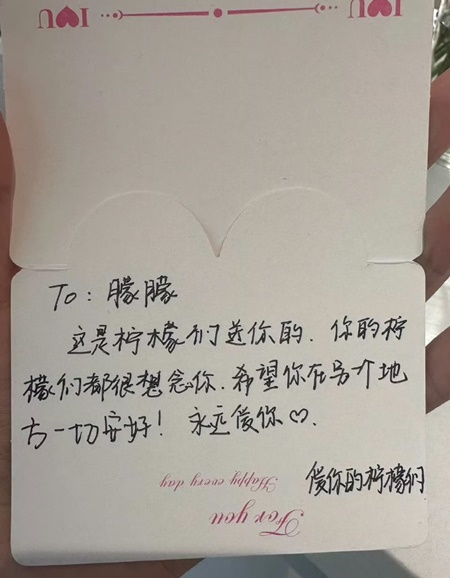 I♥U I♥U
To：朦朦
这是柠檬们送你的. 你的柠
檬们都很想念你. 希望你在另个地
方一切安好！永远爱你♡.
爱你的柠檬们
Happy every day
For you